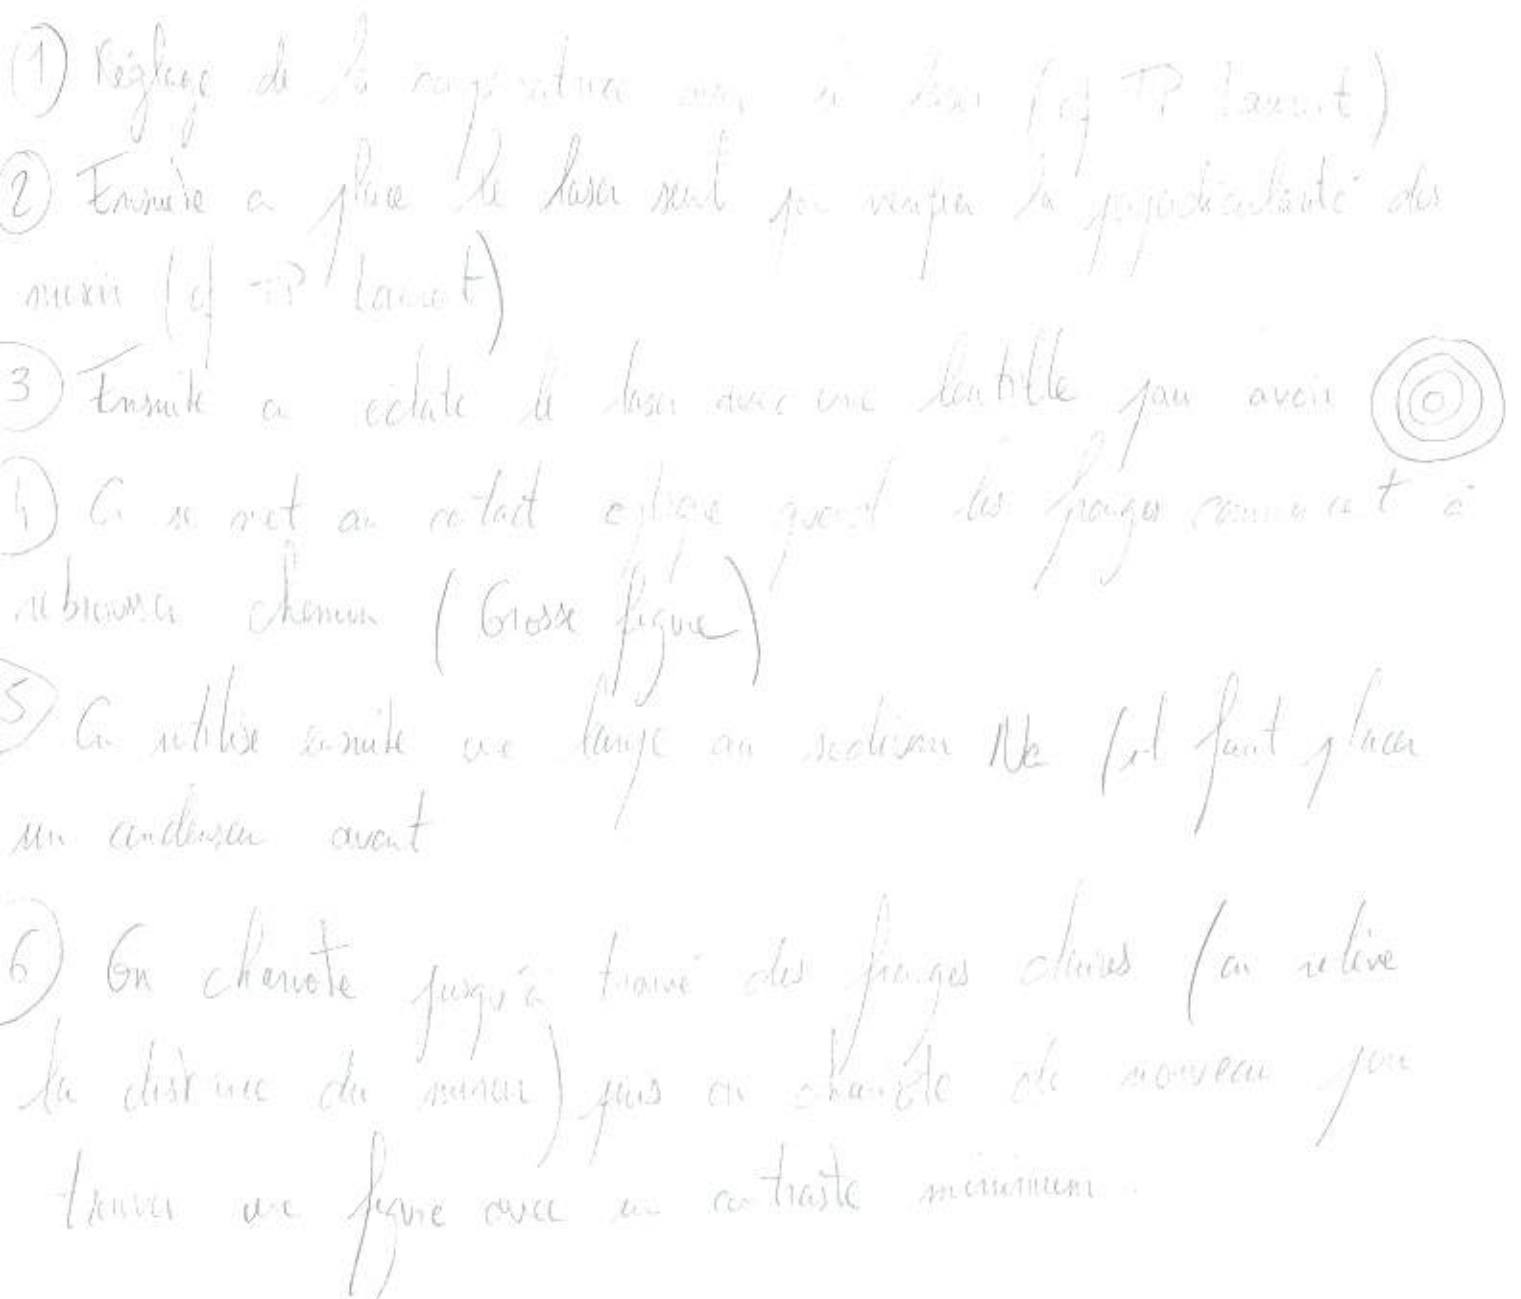 ① Réglage de la avec le laser (cf TP Laurent)
② Ensuite on place le laser seul pour verifier la perpendicularité des
miroir (cf TP Laurent)
③ Ensuite on eclate le laser avec une lentille pour avoir
④ On se met au contact optique quand les franges commencent à
rebrousser chemin (Grosse figure)
⑤ On utilise ensuite une lampe au sodium Na (il faut placer
un condenseur avant
⑥ On chariote jusqu'à trouvé des franges claires (on relève
la distance du miroir) puis on chariote de nouveau pour
trouver une figure avec un contraste minimum.